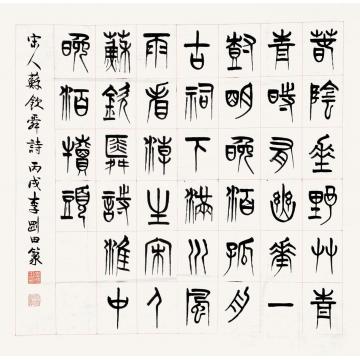 春陰垂野艸青
青時有幽華一
樹明晚泊孤舟
古祠下滿川風
雨看潮生宋人
蘇欽舜詩淮中
晚泊犢頭
宋人蘇欽舜詩丙戌李剛田篆